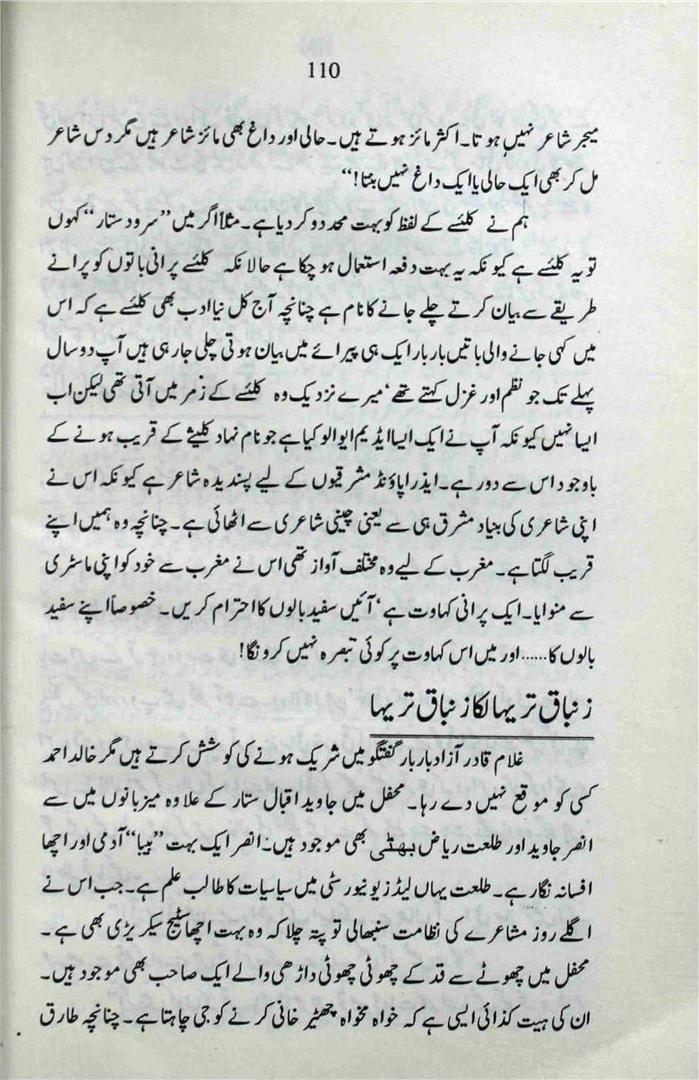 110
میجر شاعر نہیں ہوتا۔ اکثر مائنر ہوتے ہیں۔ حالی اور داغ بھی مائنر شاعر ہیں مگر دس شاعر
مل کر بھی ایک حالی یا ایک داغ نہیں بنتا!‘‘
ہم نے کلیشے کے لفظ کو بہت محدود کر دیا ہے۔ مثلاً اگر میں ’’سرود ستار‘‘ کہوں
تو یہ کلیشے ہے کیونکہ یہ بہت دفعہ استعمال ہو چکا ہے حالانکہ کلیشے پرانی باتوں کو پرانے
طریقے سے بیان کرتے چلے جانے کا نام ہے چنانچہ آج کل نیا ادب بھی کلیشے ہے کہ اس
میں کہی جانے والی باتیں بار بار ایک ہی پیرائے میں بیان ہوتی چلی جا رہی ہیں آپ دو سال
پہلے تک جو نظم اور غزل کہتے تھے، میرے نزدیک وہ کلیشے کے زمر میں آتی تھی لیکن اب
ایسا نہیں کیونکہ آپ نے ایک ایسا ایڈیم ایوالو کیا ہے جو نام نہاد کلیشے کے قریب ہونے کے
باوجود اس سے دور ہے۔ ایذرا پاؤنڈ مشرقیوں کے لیے پسندیدہ شاعر ہے کیونکہ اس نے
اپنی شاعری کی بنیاد مشرق ہی سے یعنی چینی شاعری سے اٹھائی ہے۔ چنانچہ وہ ہمیں اپنے
قریب لگتا ہے۔ مغرب کے لیے وہ مختلف آواز تھی اس نے مغرب سے خود کو اپنی ماسٹری
سے منوایا۔ ایک پرانی کہاوت ہے، آئیں سفید بالوں کا احترام کریں۔ خصوصاً اپنے سفید
بالوں کا...... اور میں اس کہاوت پر کوئی تبصرہ نہیں کرونگا!
زنباق تریہا لکا زنباق تریہا
غلام قادر آزاد بار بار گفتگو میں شریک ہونے کی کوشش کرتے ہیں مگر خالد احمد
کسی کو موقع نہیں دے رہا۔ محفل میں جاوید اقبال ستار کے علاوہ میزبانوں میں سے
انصر جاوید اور طلعت ریاض بھٹی بھی موجود ہیں۔ انصر ایک بہت ’’بیبا‘‘ آدمی اور اچھا
افسانہ نگار ہے۔ طلعت یہاں لیڈز یونیورسٹی میں سیاسیات کا طالب علم ہے۔ جب اس نے
اگلے روز مشاعرے کی نظامت سنبھالی تو پتہ چلا کہ وہ بہت اچھا سٹیج سیکریڑی بھی ہے۔
محفل میں چھوٹے سے قد کے چھوٹی چھوٹی داڑھی والے ایک صاحب بھی موجود ہیں۔
ان کی ہیت کذائی ایسی ہے کہ خواہ مخواہ چھیڑ خانی کرنے کو جی چاہتا ہے۔ چنانچہ طارق